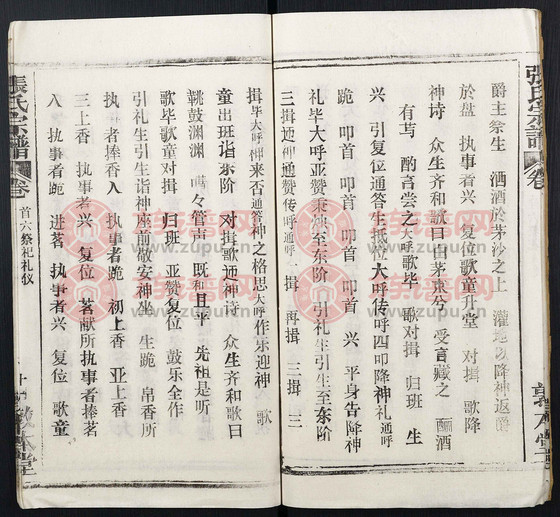 張氏宗譜 卷
爵主祭生 洒酒於茅沙之上 灌地以降神返爵
於盘 执事者兴 复位歌童升堂 对揖 歌降
神诗 众生齐和歌曰白茅束兮 受言藏之 酾酒
有苾 酌言尝之大呼歌毕 歌对揖 归班 生
兴 引复位通答生抵位大呼传呼四叩降神礼通呼
跪 叩首 叩首 叩首 兴 平身告降神
礼毕大呼亚赞秉神至东阶 引礼生引生至东阶
三揖迎神通赞传呼通呼 揖 再揖 三揖 三
敦本堂
揖毕大呼神来否通答神之格思大呼作乐迎神 歌
童出班诣东阶 对揖歌迎神诗 众生齐和歌曰
鞉鼓渊渊 嘒々管声 既和且平 先祖是听
歌毕歌童对揖 归班 亚赞复位 鼓乐全作
引礼生引生诣神座前敬安神坐 生跪 帛香所
执事者捧香入 执事者跪 初上香 亚上香
三上香 执事者兴 复位 茗献所执事者捧茗
入 执事者跪 进茗 执事者兴 复位 歌童
張氏宗譜 卷 首六祭祀礼仪 十 敦本堂
族谱网
www.zupu.cn